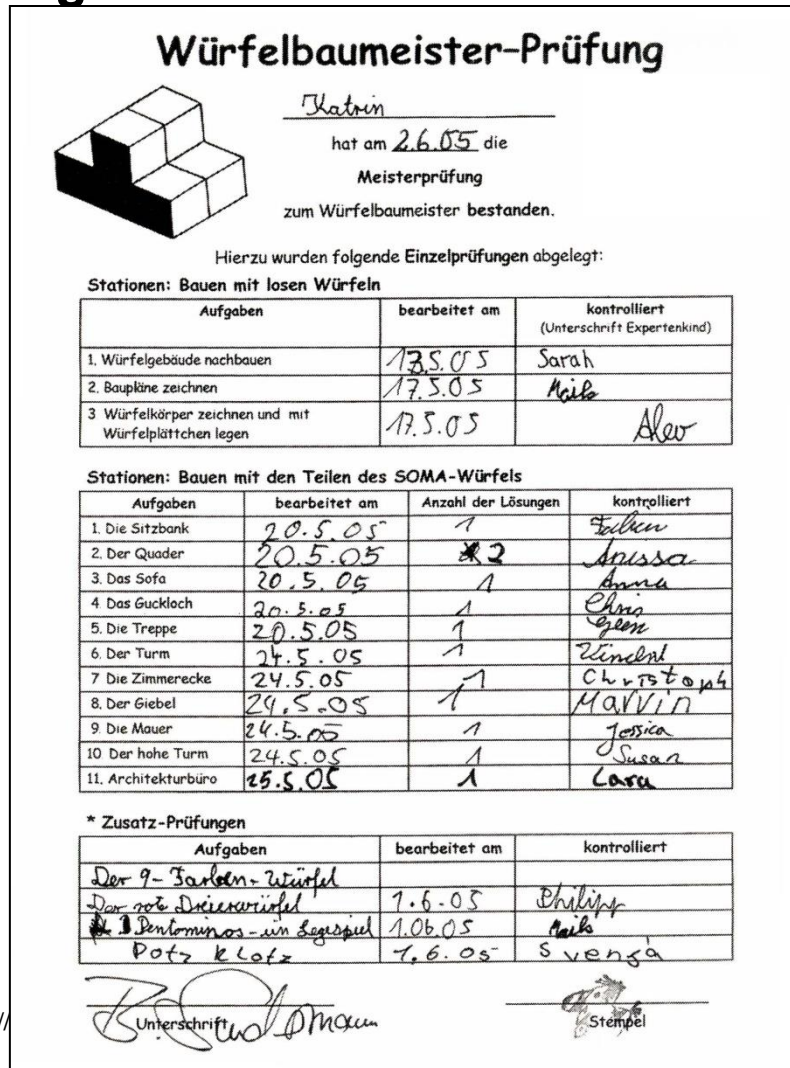 Würfelbaumeister-Prüfung
Katrin
hat am 2.6.05 die
Meisterprüfung
zum Würfelbaumeister bestanden.
Hierzu wurden folgende Einzelprüfungen abgelegt:
Stationen: Bauen mit losen Würfeln
Aufgaben bearbeitet am kontrolliert
(Unterschrift Expertenkind)
1. Würfelgebäude nachbauen 13.5.05 Sarah
2. Baupläne zeichnen 17.5.05 Maik
3 Würfelkörper zeichnen und mit
Würfelplättchen legen 17.5.05 Alev
Stationen: Bauen mit den Teilen des SOMA-Würfels
Aufgaben bearbeitet am Anzahl der Lösungen kontrolliert
1. Die Sitzbank 20.5.05 1
2. Der Quader 20.5.05 2 Anissa
3. Das Sofa 20.5.05 1 Anna
4 Das Guckloch 20.5.05 1 Chris
5. Die Treppe 20.5.05 1
6. Der Turm 24.5.05 1 Vincent
7 Die Zimmerecke 24.5.05 1 Christoph
8. Der Giebel 24.5.05 1 Marvin
9. Die Mauer 24.5.05 1 Jessica
10 Der hohe Turm 24.5.05 1 Susan
11. Architekturbüro 25.5.05 1 Lara
* Zusatz-Prüfungen
Aufgaben bearbeitet am kontrolliert
Der 9-Farben-Würfel
Der rote Dreierwürfel 1.6.05 Philipp
Pentominos-ein Legespiel 1.06.05 Maik
Potz Klotz 1.6.05 Svenja
Unterschrift Stempel
//